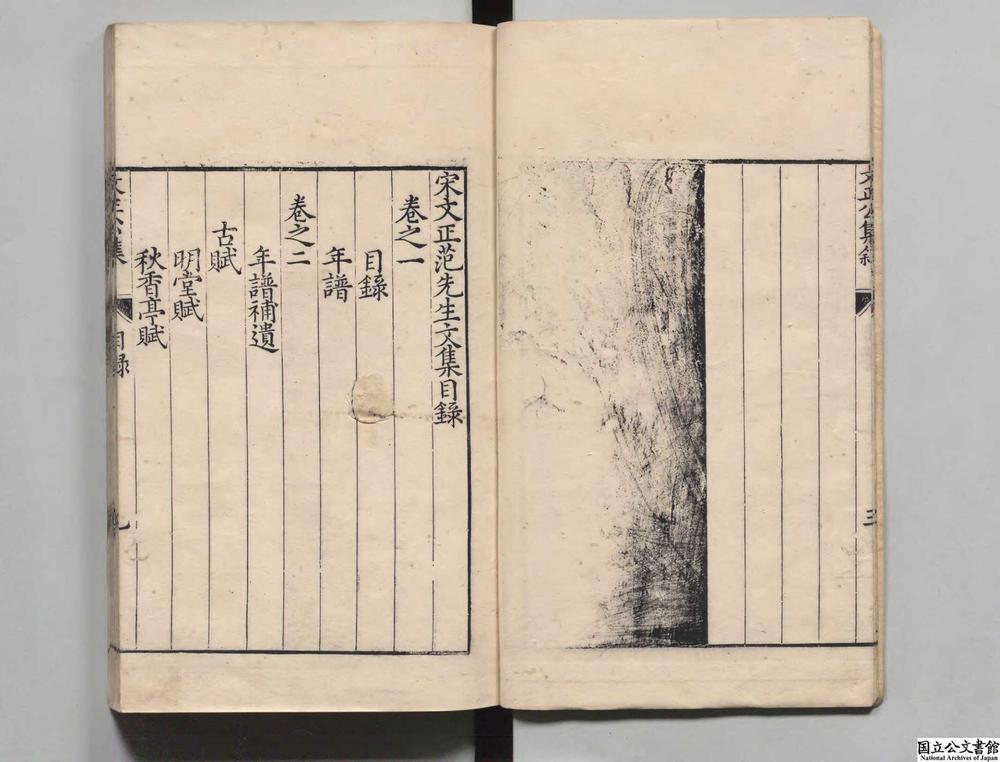 文正公集敘
三
宋文正范先生文集目錄
卷之一
目錄
年譜
卷之二
年譜補遺
古賦
明堂賦
秋香亭賦
文正公集
目録
国立公文書館
National Archives of Japan